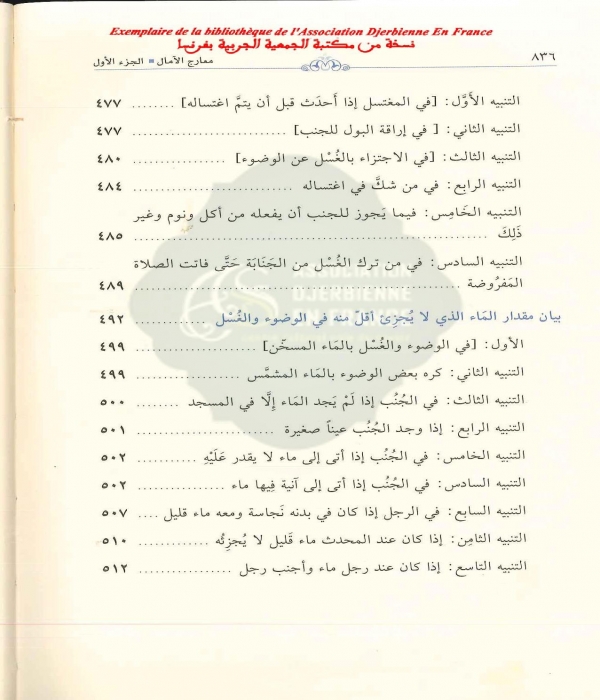 Exemplaire de la bibliothèque de l'Association Djerbienne En France
نسخة من مكتبة الجمعية الجربية بفرنسا
٨٣٦
معارج الآمال ■ الجزء الأول
التنبيه الأَوَّل: [في المغتسل إذا أَحدَث قبل أن يتمَّ اغتساله] ........ ٤٧٧
التنبيه الثاني: [ في إراقة البول للجنب] ............................. ٤٧٧
التنبيه الثالث: [في الاجتزاء بالغُسْل عن الوضوء] ................. ٤٨٠
التنبيه الرابع: في من شكَّ في اغتساله ............................. ٤٨٤
التنبيه الخَامِس: فيما يَجوز للجنب أن يفعله من أكل ونوم وغير
ذَلِكَ ............................................................. ٤٨٥
التنبيه السادس: في من ترك الغُسْل من الجَنَابَة حَتَّى فاتت الصلاة
المَفرُوضة ........................................................ ٤٨٩
بيان مقدار المَاء الذي لا يُجزِئ أقلّ منه في الوضوء والغُسْل ............ ٤٩٢
الأول: [في الوضوء والغُسْل بالمَاء المسخّن] ...................... ٤٩٩
التنبيه الثاني: كره بعض الوضوء بالمَاء المشمَّس .................. ٤٩٩
التنبيه الثالث: في الجُنُب إذا لَمْ يَجد المَاء إِلَّا في المسجد ......... ٥٠٠
التنبيه الرابع: إذا وجد الجُنُب عيناً صغيرة ........................ ٥٠١
التنبيه الخامس: في الجُنُب إذا أتى إلى ماء لا يقدر عَلَيْهِ ............ ٥٠٢
التنبيه السادس: في الجُنُب إذا أتى إلى آنية فِيها ماء ................ ٥٠٢
التنبيه السابع: في الرجل إذا كان في بدنه نَجاسة ومعه ماء قليل .... ٥٠٧
التنبيه الثامِن: إذا كان عند المحدث ماء قَليل لا يُجزِئُه ............. ٥١٠
التنبيه التاسع: إذا كان عند رجل ماء وأجنب رجل ................. ٥١٢
ASSOCIATION
DJERBIENNE
EN FRANCE